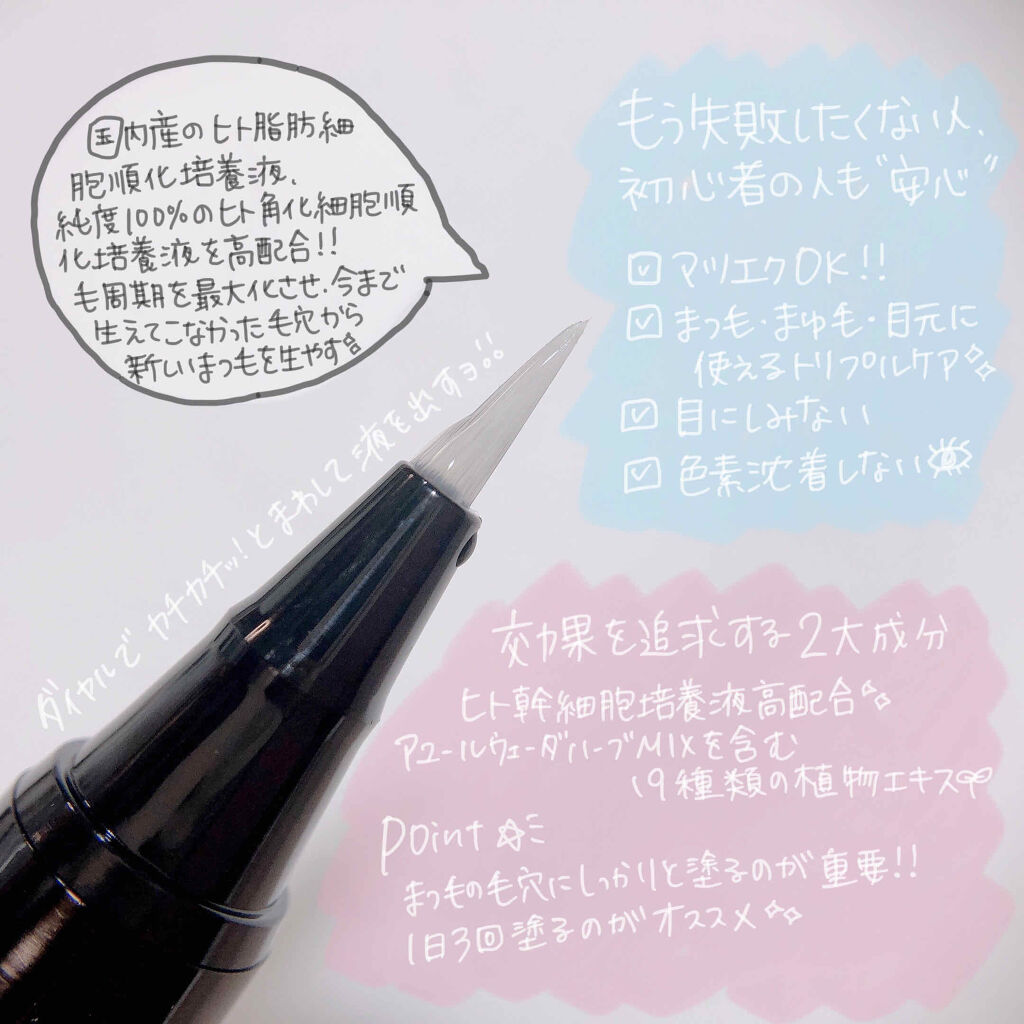 国内産のヒト脂肪細
胞順化培養液、
純度100%のヒト角化細胞順
化培養液を高配合!!
毛周期を最大化させ、今まで
生えてこなかった毛穴から
新しいまつ毛を生やす
もう失敗したくない人、
初心者の人も"安心"
☑ マツエクOK!!
☑ まつ毛・まゆ毛・目元に
使えるトリプルケア
☑ 目にしみない
☑ 色素沈着しない
ダイヤルでカチカチッ!とまわして液を出すヨ!!
効果を追求する2大成分
ヒト幹細胞培養液高配合
アユールヴェーダハーブMIXを含む
19種類の植物エキス
Point
まつ毛の毛穴にしっかりと塗るのが重要!!
1日3回塗るのがオススメ